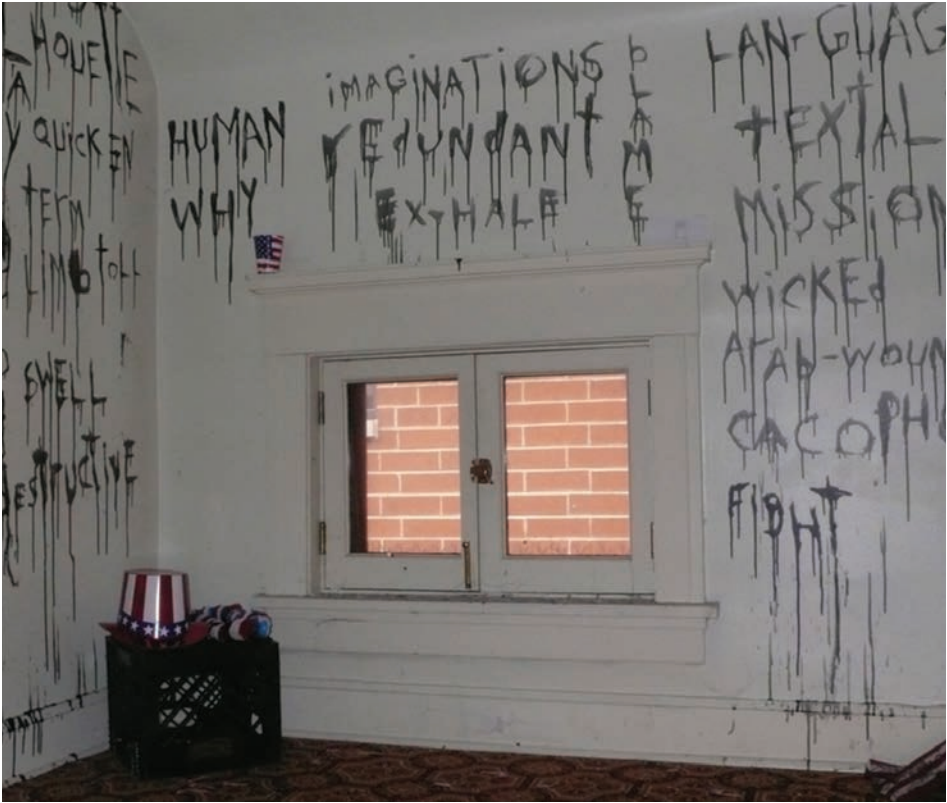 HOUETTE
QUICKEN
TERM
LIMB TOLL
SWELL
ESTRUCTIVE
HUMAN
WHY
iMAGiNATiONS
rEdUNdANt
EX-HALE
bLAME
LAN-GUAG
tEXtAL
MiSSiON
WiCKEd
ArAb-WOUN
CACOPHO
FIGHT